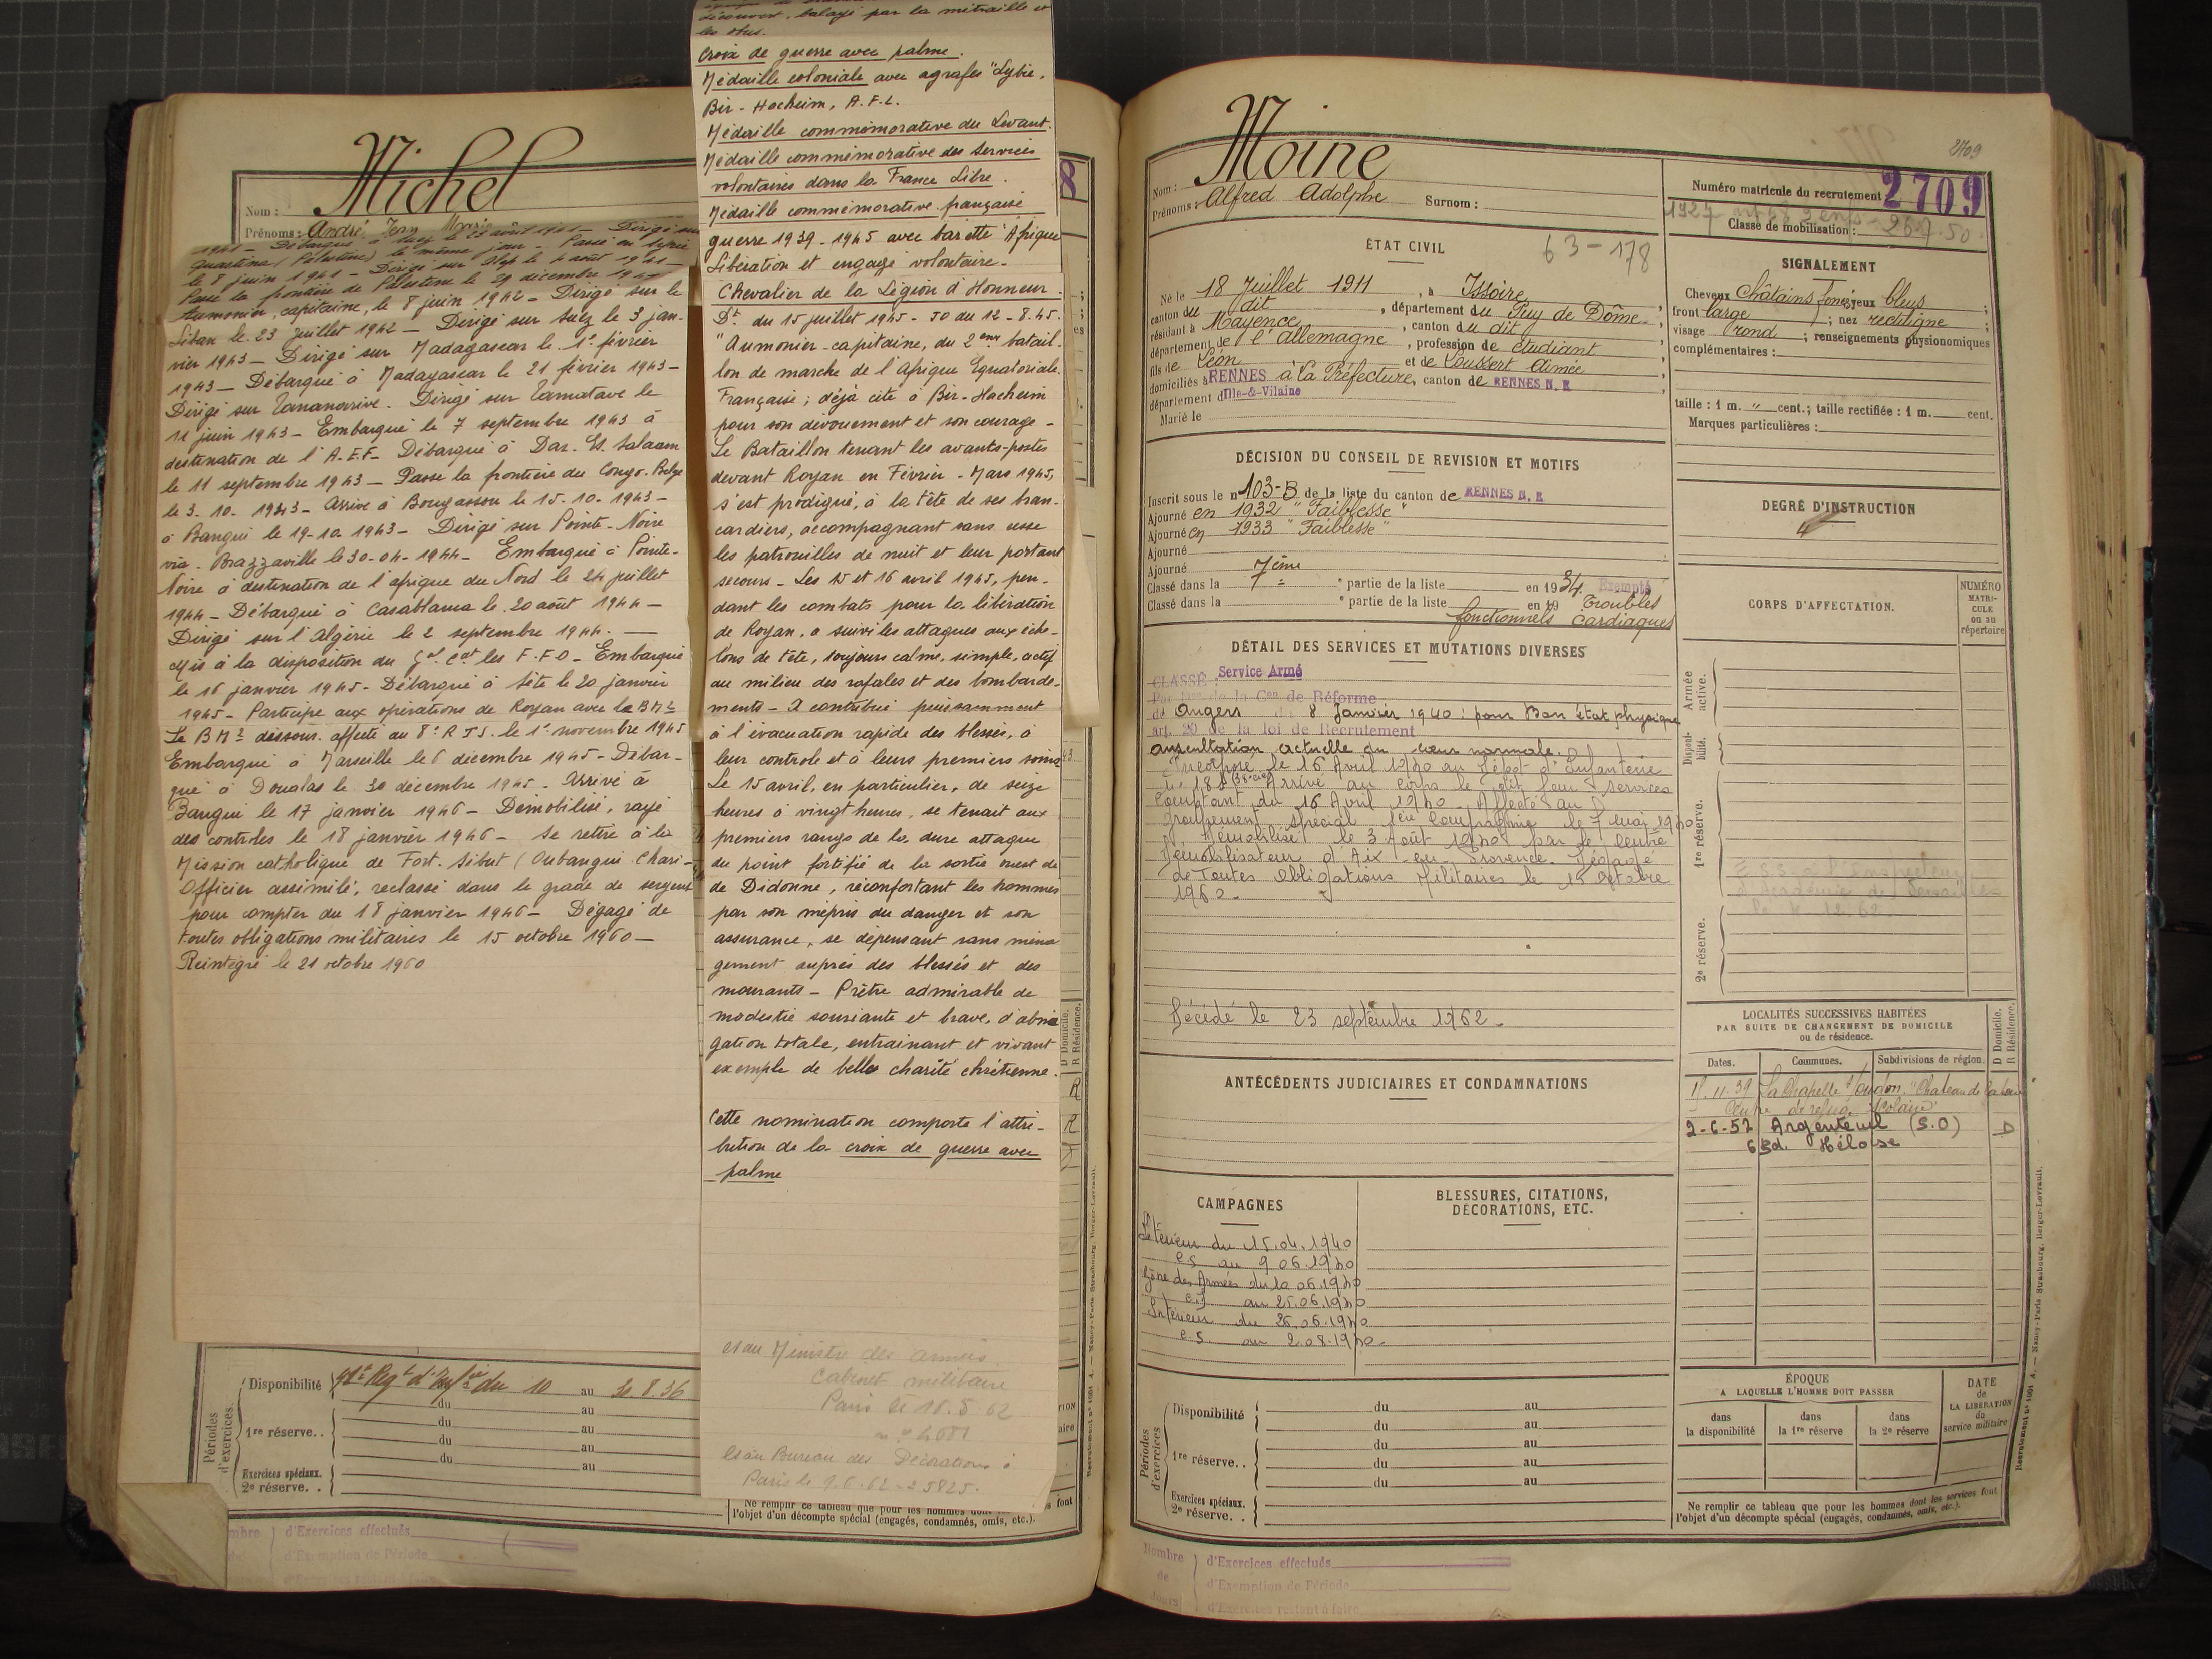 Michel
Nom :
Prénoms : André Jean Marie
le 8 juin 1941 - Dirigé sur Alep le 4 août 1941 -
Passe la frontière de Palestine le 29 décembre 1941
Aumonier, capitaine, le 8 juin 1942 - Dirigé sur le
Liban le 23 juillet 1942 - Dirigé sur Suez le 3 jan-
vier 1943 - Dirigé sur Madagascar le 1er février
1943 - Débarqué à Madagascar le 21 février 1943 -
Dirigé sur Tananarive. Dirigé sur Tamatave le
11 juin 1943 - Embarqué le 7 septembre 1943 à
destination de l'A.E.F. Débarqué à Dar. Es. Salaam
le 11 septembre 1943 - Passe la frontière du Congo-Belge
le 3-10-1943 - Arrivé à Bougassou le 15-10-1943 -
à Bangui le 19-10-1943 - Dirigé sur Pointe-Noire
via Brazzaville le 30-04-1944 - Embarqué à Pointe-
Noire à destination de l'afrique du Nord le 24 juillet
1944 - Débarqué à Casablanca le 20 août 1944 -
Dirigé sur l'Algérie le 2 septembre 1944. -
Mis à la disposition du Gal Cdt les F.F.O - Embarqué
le 16 janvier 1945 - Débarqué à Sète le 20 janvier
1945 - Participe aux opérations de Royan avec le BM2
Le BM2 dissous. affecté au 8e R T S. le 1er novembre 1945
Embarqué à Marseille le 6 décembre 1945 - Débar-
qué à Douala le 30 décembre 1945 - Arrivé à
Bangui le 17 janvier 1946 - Démobilisé, rayé
des controles le 18 janvier 1946 - Se retire à la
Mission catholique de Fort-Sibut (Oubangui-Chari-
Officier assimilé, reclassé dans le grade de sergent
pour compter du 18 janvier 1946 - Dégagé de
toutes obligations militaires le 15 octobre 1960 -
Réintégré le 21 octobre 1960
découvert, balayé par la mitraille et
les obus.
Croix de guerre avec palme.
Médaille coloniale avec agrafes "Lybie,
Bir-Hacheim, A.F.L.
Médaille commémorative du Levant.
Médaille commémorative des Services
volontaires dans la France Libre.
Médaille commémorative française
guerre 1939-1945 avec barette Afrique
Libération et engagé volontaire.
Chevalier de la Légion d'Honneur
Dt du 15 juillet 1945 - JO du 12-8-45.
"Aumonier-capitaine, du 2ème batail-
lon de marche de l'Afrique Equatoriale
Française ; déjà cité à Bir-Hacheim
pour son dévouement et son courage -
Le Bataillon tenant les avants-postes
devant Royan en Février-Mars 1945,
s'est prodigué, à la tête de ses bran-
cardiers, accompagnant sans cesse
les patrouilles de nuit et leur portant
secours - Les 15 et 16 avril 1945, pen-
dant les combats pour la libération
de Royan, a suivi les attaques aux éche-
lons de tête, toujours calme, simple, actif
au milieu des rafales et des bombarde-
ments - A contribué puissamment
à l'évacuation rapide des blessés, à
leur controle et à leurs premiers soins
Le 15 avril, en particulier, de seize
heures à vingt heures, se tenait aux
premiers rangs de la dure attaque
du point fortifié de la sortie ouest de
de Didonne, réconfortant les hommes
par son mépris du danger et son
assurance, se dépensant sans ména
gement auprès des blessés et des
mourants - Prêtre admirable de
modestie souriante et brave, d'abné
gation totale, entrainant et vivant
exemple de belle charité chrétienne.
Cette nomination comporte l'attri-
bution de la croix de guerre avec
palme
et au Ministre des armées
Cabinet militaire
Paris le 16.5.62
et au Bureau des Décorations à
Paris le 9.6.62 - 5825.
8
D Domicile.
R Résidence.
R
R
Périodes d'exercices.
Disponibilité 41e Regt d'Infie du 10 au 30.8.36
du au
1re réserve.. du au
du au
du au
Exercices spéciaux.
2e réserve. .
Ne remplir ce tableau que pour les hommes dont
l'objet d'un décompte spécial (engagés, condamnés, omis, etc.).
d'Exercices effectués
d'Exemption de Période
Moine
2709
Nom :
Prénoms : Alfred Adolphe Surnom :
Numéro matricule du recrutement 2709
Classe de mobilisation :
ÉTAT CIVIL
63-178
Né le 18 Juillet 1911, à Issoire,
canton du dit, département du Puy de Dôme,
résidant à Mayence, canton du dit,
département de l'Allemagne, profession de étudiant
fils de Léon et de Loussert Aimée
domiciliés à RENNES à la Préfecture, canton de RENNES N. E
département d'Ille-&-Vilaine
Marié le
SIGNALEMENT
Cheveux Châtains foncé yeux bleus ;
front large ; nez rectiligne ;
visage rond ; renseignements physionomiques
complémentaires :
taille : 1 m. " cent.; taille rectifiée : 1 m. cent.
Marques particulières :
DÉCISION DU CONSEIL DE REVISION ET MOTIFS
Inscrit sous le n° 103-B de la liste du canton de RENNES N. E
Ajourné en 1932 "Faiblesse"
Ajourné en 1933 "Faiblesse"
Ajourné
Ajourné
Classé dans la 7ème partie de la liste en 1934. Exempté
Classé dans la partie de la liste en 19 Troubles
fonctionnels cardiaques
DEGRÉ D'INSTRUCTION
4
CORPS D'AFFECTATION.
NUMÉRO
MATRI-
CULE
ou au
répertoire
DÉTAIL DES SERVICES ET MUTATIONS DIVERSES
CLASSÉ : Service Armé
Par Don de la Con de Réforme
de Angers du 8 Janvier 1940 : pour Bon état physique
art. 20 de la loi de Recrutement
auscultation actuelle du cœur normale.
Incorporé le 16 Avril 1940 au Dépôt d'Infanterie
n° 182 (38e Cie) Arrivé au corps le dit jour services
Comptant du 16 Avril 1940. Affecté au
groupement spécial 1ère Compagnie le 7 mai 1940
Démobilisé le 3 Août 1940 par le Centre
Démobilisateur d'Aix-en-Provence. Dégagé
de Toutes Obligations Militaires le 15 Octobre
1960 -
Décédé le 23 septembre 1962 -
Armée active.
Disponibilité.
1re réserve.
2e réserve.
ANTÉCÉDENTS JUDICIAIRES ET CONDAMNATIONS
LOCALITÉS SUCCESSIVES HABITÉES
PAR SUITE DE CHANGEMENT DE DOMICILE
ou de résidence.
D Domicile.
R Résidence.
Dates. Communes. Subdivisions de région.
11.39 La Chapelle s/Loudon, "Chateau de
Centre de refuge
2-6-52 Argenteuil (S.O) D
6 Bd. Héloïse
CAMPAGNES
Intérieur du 15.04.1940
C.S au 9.06.1940
Zone des Armées du 10.06.1940
C.S au 25.06.1940
Intérieur du 26.06.1940
C.S au 2.08.1940 -
BLESSURES, CITATIONS,
DÉCORATIONS, ETC.
Périodes d'exercices
Disponibilité du au
du au
1re réserve.. du au
du au
du au
Exercices spéciaux.
2e réserve. .
ÉPOQUE
A LAQUELLE L'HOMME DOIT PASSER
dans la disponibilité dans la 1re réserve dans la 2e réserve
DATE
de
LA LIBÉRATION
du
service militaire
Ne remplir ce tableau que pour les hommes dont les services font
l'objet d'un décompte spécial (engagés, condamnés, omis, etc.).
Nombre de Jours
d'Exercices effectués
d'Exemption de Période
d'Exercices restant à faire